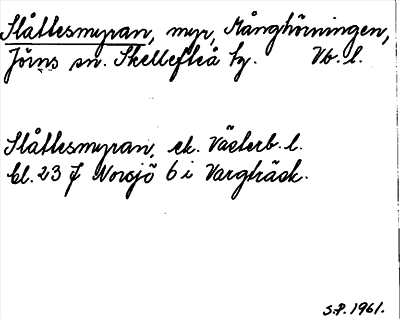 Slåttesmyran, myr, Månghörningen,
Jörns sn. Skellefteå tg. Vb. l.
Slåttesmyran, ek. Västerb. l.
bl. 23 J Norsjö 6 i Vargträsk.
S.P. 1961.